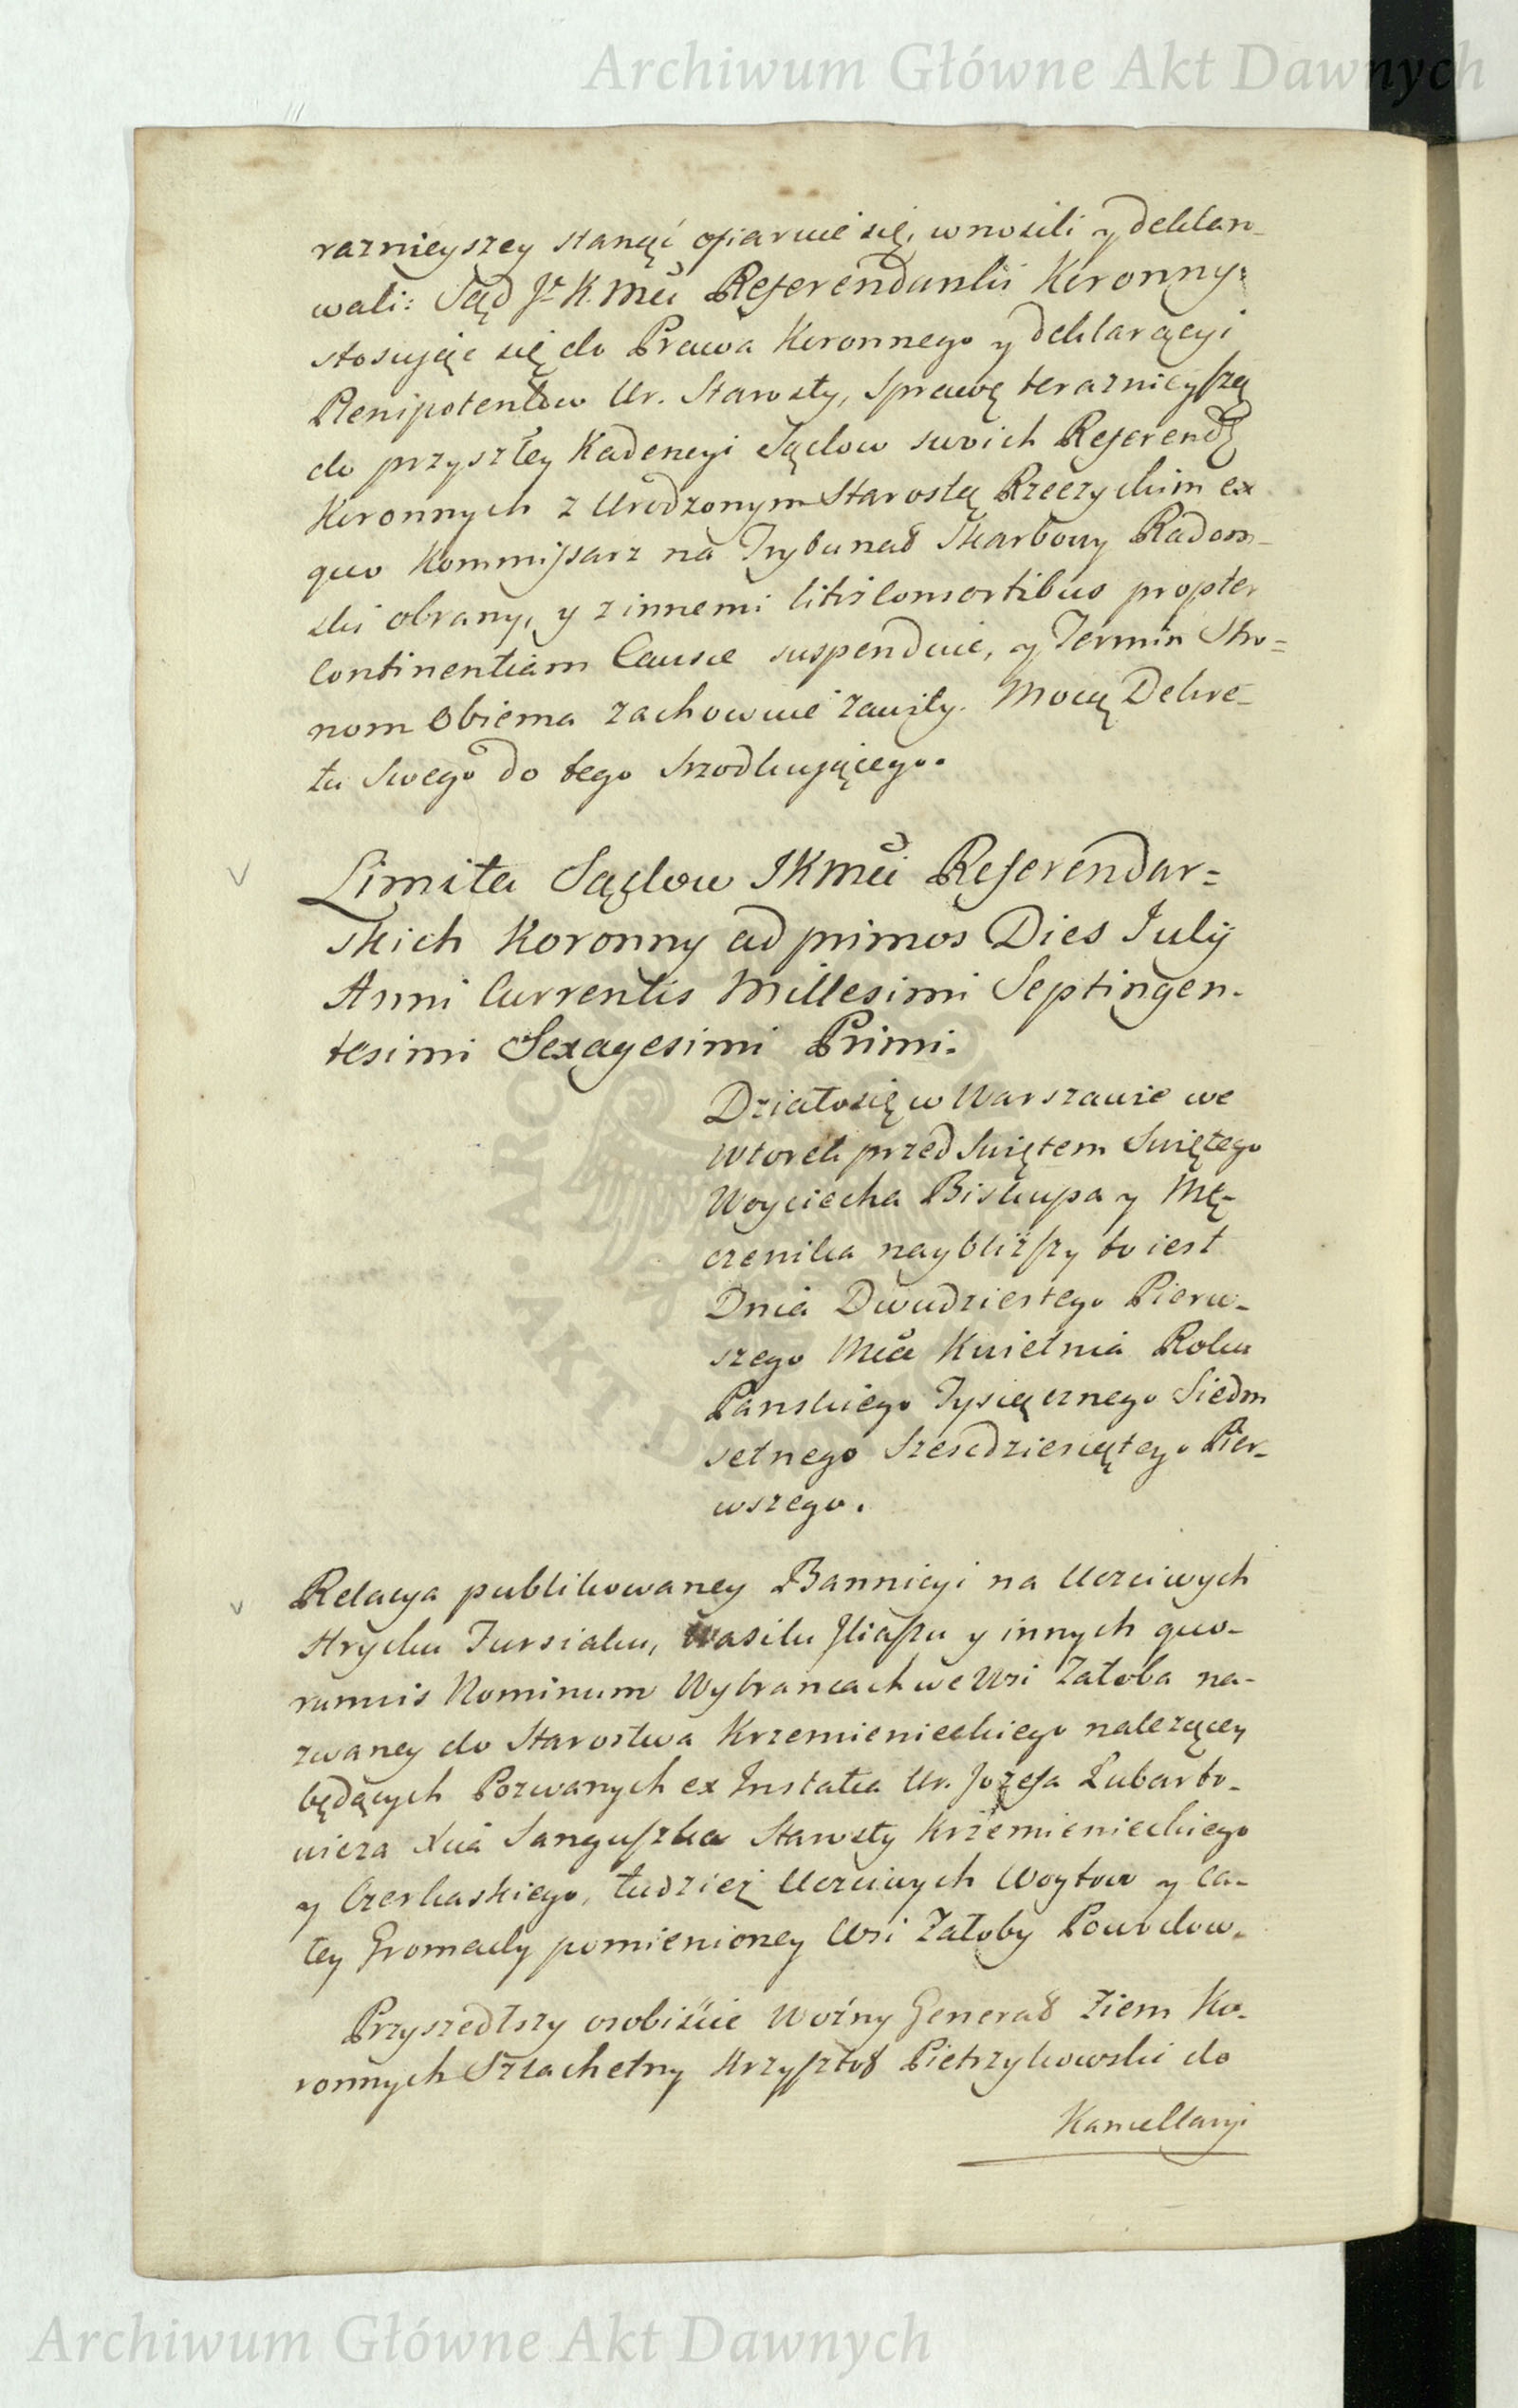 Archiwum Główne Akt Dawnych
raznieyszey stanąć ofiaruie się, wnosili y deklaro-
wali: Sąd Jº K. Mći Referendarski Koronny:
stosuiąc się do Prawa Koronnego y deklaracyi
Plenipotentow Ur. Starosty, sprawę teraznieyszą
do przyszłey Kadencyi Sądow swoich Referend:
Koronnych z Urodzonym Starostą Rzeczyckim ex
quo Kommissarz na Trybunał Skarbowy Radom-
ski obrany, y z innemi litis Consortibus propter
Continentiam Causæ suspenduie, y Termin Stro=
nom Obiema zachowuie zawity. Mocą Dekre-
tu Swego do tego srzodkuiącego.
Limita Sądow JKMći Referendar=
skich Koronny ad primos Dies Julij
Anni Currentis Millesimi Septingen-
tesimi Sexagesimi Primi.
Działo się w Warszawie we
Wtorek przed Swiętem Swiętego
Woyciecha Biskupa y Mę-
czenika nayblizszy to iest
Dnia Dwudziestego Pierw-
szego Mća Kwietnia Roku
Panskiego Tysiącznego Siedm
setnego Szescdziesiątego Pier-
wszego.
Relacya publikowaney Bannicyi na Uczciwych
Hrycku Jursiaku, Wasilu Iliaszu y innych quo-
rumvis Nominum Wybrancach we Wsi Załoba na-
zwaney do Starostwa Krzemienieckiego nalezącey
będących Pozwanych ex Instatia Ur. Jozefa Lubarto-
wicza Xcia Sanguszka Starosty Krzemienieckiego
y Czerkaskiego, tudziez Uczciwych Woytow y ca-
łey Gromady pomienioney Wsi Załoby Powodow.
Przyszedłszy osobiście Woźny Generał Ziem Ko-
ronnych Szlachetny Krzysztof Pietrzykowski do
Kancellaryi
Archiwum Główne Akt Dawnych